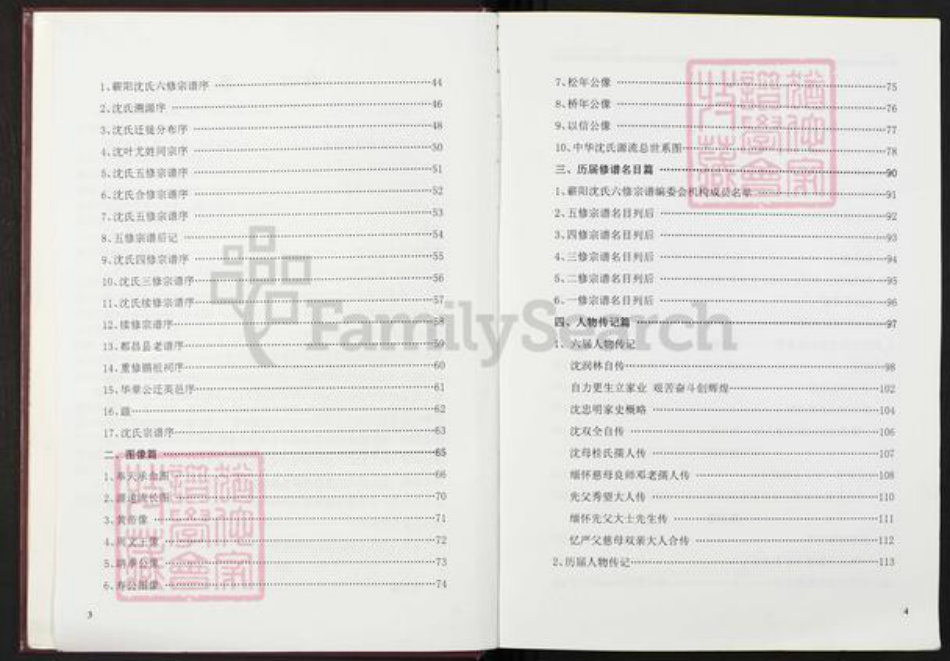 1、蕲阳沈氏六修宗谱序 44
2、沈氏溯源序 46
3、沈氏迁徙分布序 48
4、沈叶尤姓同宗序 50
5、沈氏五修宗谱序 51
6、沈氏合修宗谱序 52
7、沈氏五修宗谱序 53
8、五修宗谱后记 54
9、沈氏四修宗谱序 55
10、沈氏三修宗谱序 56
11、沈氏续修宗谱序 57
12、续修宗谱序 58
13、都昌县老谱序 59
14、重修 祖祠序 60
15、华章公迁英邑序 61
16、 62
17、沈氏宗谱序 63
二、图像篇 65
1、奉天承命图 66
2、源远流长图 70
3、黄帝像 71
4、周文王像 72
5、聃季公像 73
6、寿公图像 74
3
7、松年公像 75
8、桥年公像 76
9、以信公像 77
10、中华沈氏源流总世系图 78
三、历届修谱名目篇 90
1、蕲阳沈氏六修宗谱编委会机构成员名单 91
2、五修宗谱名目列后 92
3、四修宗谱名目列后 93
4、三修宗谱名目列后 94
5、二修宗谱名目列后 95
6、一修宗谱名目列后 96
四、人物传记篇 97
1、六届人物传记
沈润林自传 98
自力更生立家业 艰苦奋斗创辉煌 102
沈忠明家史概略 104
沈双全自传 106
沈母桂氏孺人传 107
缅怀慈母良师邓老孺人传 108
先父秀望大人传 110
缅怀先父大士先生传 111
忆严父慈母双亲大人合传 112
2、历届人物传记 113
4
FamilySearch